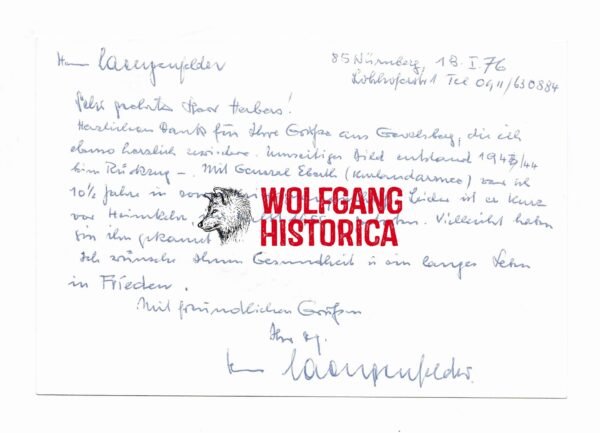 Hans Laengenfelder
85 Nürnberg, 18.I.76
1 Tel 0911/630884
Sehr geehrter Herr Herbers!
Herzlichen Dank für Ihre Grüße aus Gevelsberg, die ich
ebenso herzlich erwidere. Umseitiges Bild entstand 1943/44
beim Rückzug –. Mit General (Kurlandarmee) war ich
10½ Jahre in Leider ist er kurz
vor Heimkehr Vielleicht haben
Sie ihn gekannt
WOLFGANG
HISTORICA
Ich wünsche Ihnen Gesundheit u ein langes Leben
in Frieden.
Mit freundlichen Grüßen
Ihr
Hans Laengenfelder